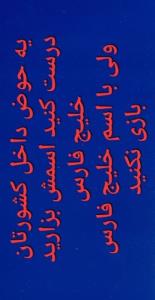 یه حوض داخل کشورتان
درست کنید اسمش بزارید
خلیج فارس
ولی با اسم خلیج فارس
بازی نکنید